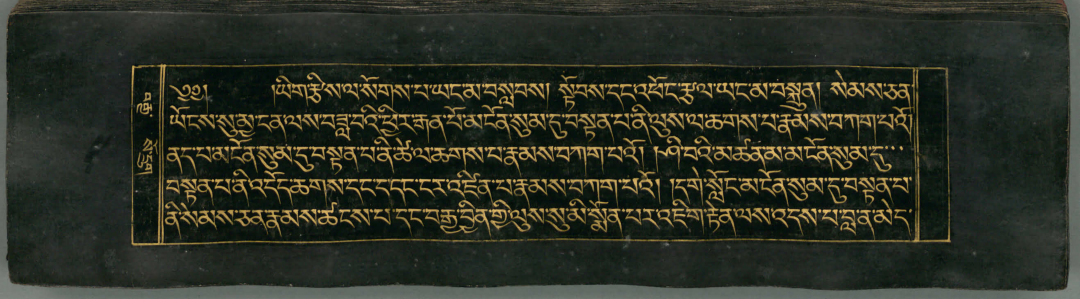 ༄༅། །ཡིག་རྩིས་ལ་སོགས་པ་ཡང་མ་བསླབས། སྟོབས་དང་འཕོང་རྩལ་ཡང་མ་བསྐྲུན། སེམས་ཅན་
ཡོངས་སུ་མྱ་ངན་ལས་བཟླ་བའི་ཕྱིར་རྒན་པོ་མངོན་སུམ་དུ་བསྟན་པ་ནི་ལུས་ལ་ཆགས་པ་རྣམས་བཀག་པའོ།
ནད་པ་མངོན་སུམ་དུ་བསྟན་པ་ནི་ཚེ་ལ་ཆགས་པ་རྣམས་བཀག་པའོ། །ཤི་བའི་མཚན་མ་མངོན་སུམ་དུ་
བསྟན་པ་ནི་འདོད་ཆགས་དང་དབང་ངར་འཛིན་པ་རྣམས་བཀག་པའོ། །དགེ་སློང་མངོན་སུམ་དུ་བསྟན་པ་
ནི་སེམས་ཅན་རྣམས་ཚངས་པ་དང་བརྒྱ་བྱིན་གྱི་ལུས་སུ་མི་སྨོན་པར་འཇིག་རྟེན་ལས་འདས་པ་བླ་ན་མེད་